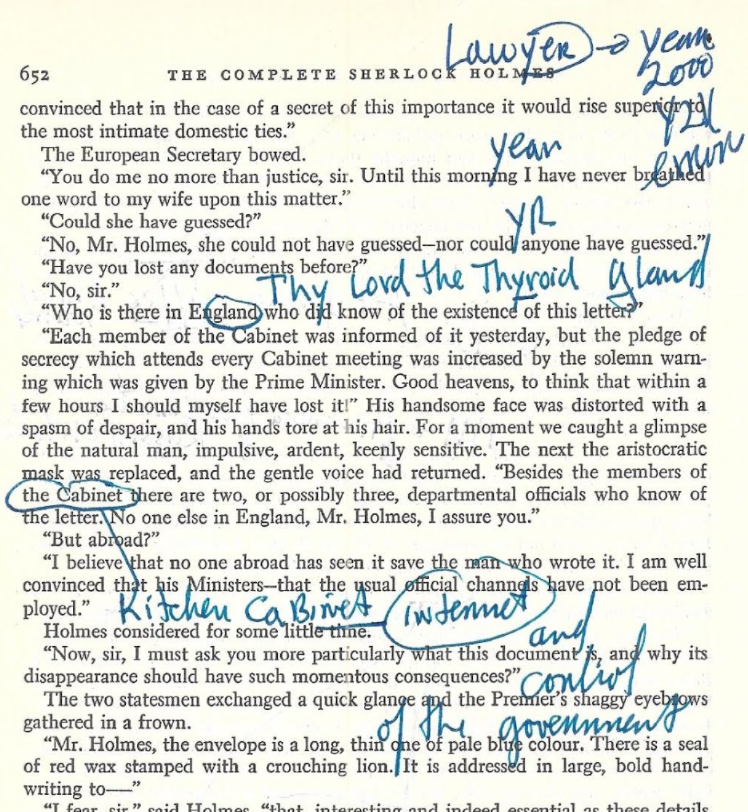 Lawyer → year
2000
652 THE COMPLETE SHERLOCK HOLMES
Y2K
error
convinced that in the case of a secret of this importance it would rise superior to
the most intimate domestic ties.”
The European Secretary bowed.
year
“You do me no more than justice, sir. Until this morning I have never breathed
one word to my wife upon this matter.”
“Could she have guessed?”
YR
“No, Mr. Holmes, she could not have guessed—nor could anyone have guessed.”
“Have you lost any documents before?”
Thy Lord the Thyroid gland
“No, sir.”
“Who is there in England who did know of the existence of this letter?”
“Each member of the Cabinet was informed of it yesterday, but the pledge of
secrecy which attends every Cabinet meeting was increased by the solemn warn-
ing which was given by the Prime Minister. Good heavens, to think that within a
few hours I should myself have lost it!” His handsome face was distorted with a
spasm of despair, and his hands tore at his hair. For a moment we caught a glimpse
of the natural man, impulsive, ardent, keenly sensitive. The next the aristocratic
mask was replaced, and the gentle voice had returned. “Besides the members of
the Cabinet there are two, or possibly three, departmental officials who know of
the letter. No one else in England, Mr. Holmes, I assure you.”
“But abroad?”
“I believe that no one abroad has seen it save the man who wrote it. I am well
convinced that his Ministers—that the usual official channels have not been em-
ployed.”
Kitchen Cabinet internet
Holmes considered for some little time.
and
“Now, sir, I must ask you more particularly what this document is, and why its
disappearance should have such momentous consequences?”
control
The two statesmen exchanged a quick glance and the Premier’s shaggy eyebrows
gathered in a frown.
of the government
“Mr. Holmes, the envelope is a long, thin one of pale blue colour. There is a seal
of red wax stamped with a crouching lion. It is addressed in large, bold hand-
writing to——”
“I fear, sir,” said Holmes, “that, interesting and indeed essential as these details